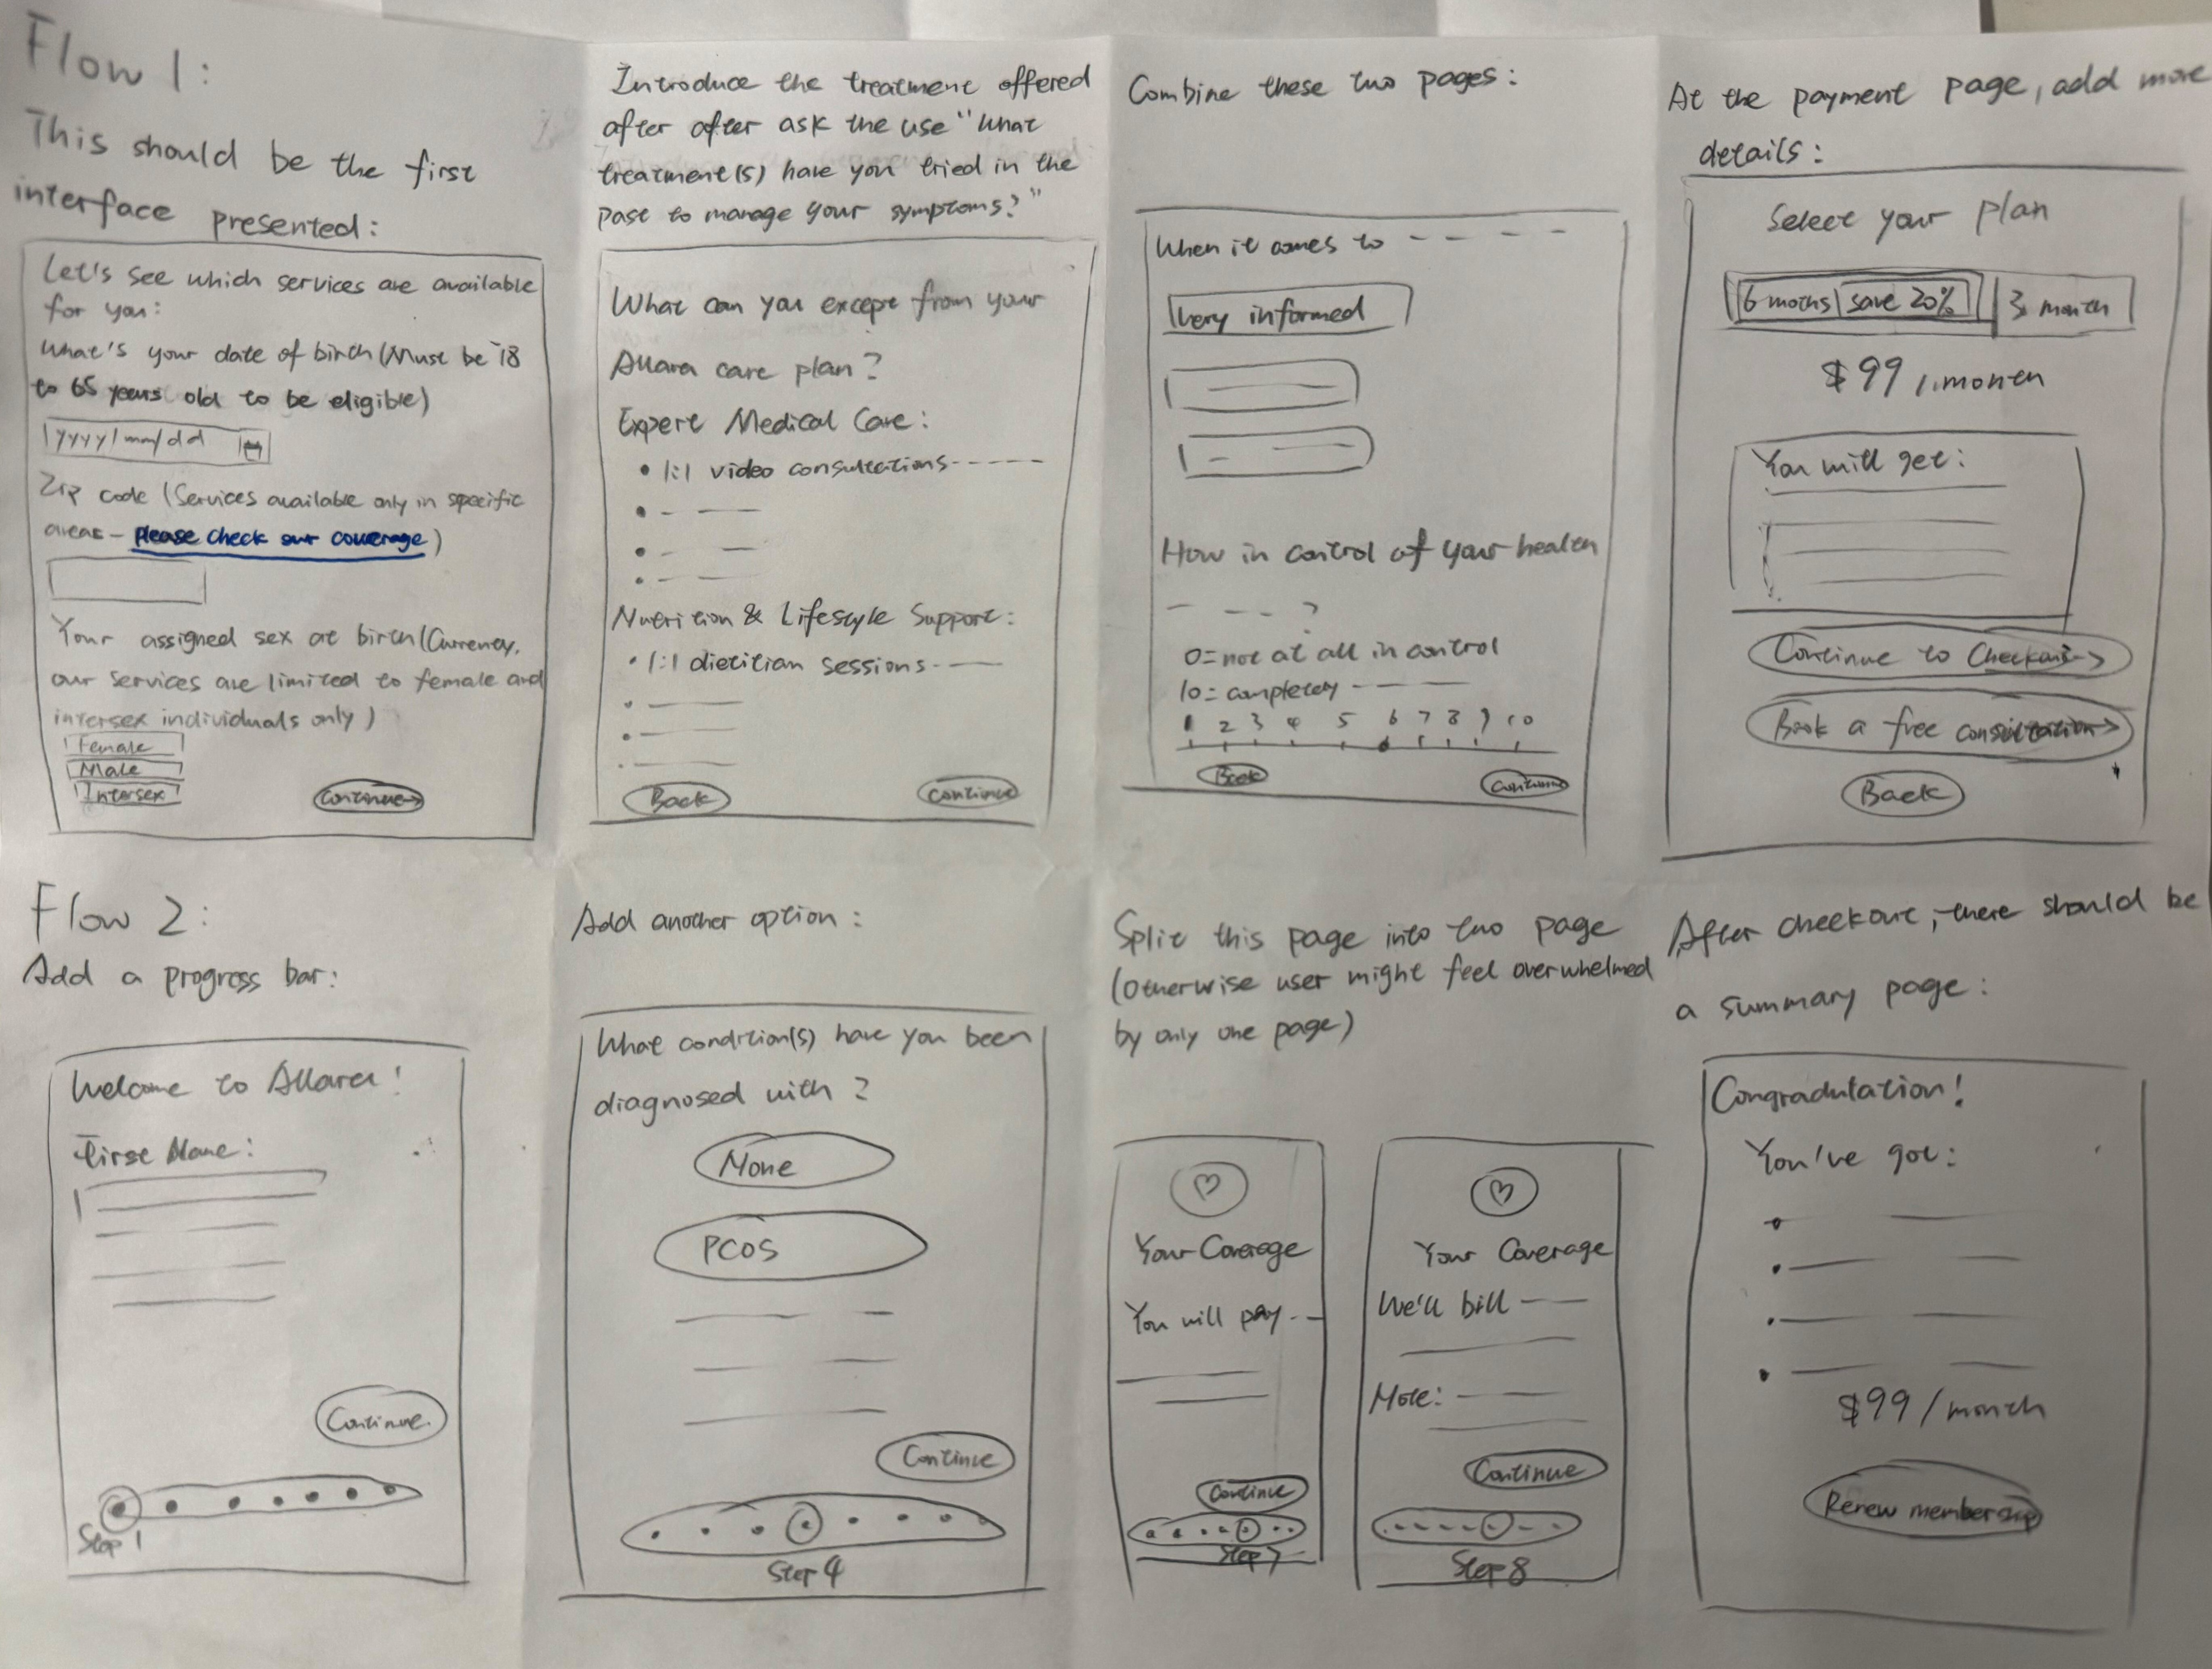 Flow 1:
This should be the first
interface presented:
Let's see which services are available
for you:
What's your date of birth (Must be 18
to 65 years old to be eligible)
yyyy/mm/dd
Zip code (Services available only in specific
areas - please check our coverage)
Your assigned sex at birth (Currency,
our services are limited to female and
intersex individuals only)
Female
Male
Intersex
Continue
Introduce the treatment offered
after after ask the use "What
treatment(s) have you tried in the
past to manage your symptoms?"
What can you except from your
Allara care plan?
Expert Medical Care:
• 1:1 video consultations
Nutrition & Lifestyle Support:
• 1:1 dietitian sessions
Back
Continue
Combine these two pages:
When it comes to
Very informed
How in control of your health
?
0=not at all in control
10=completely
2 3 4 5 6 7 8 9 10
Back
Continue
At the payment page, add more
details:
Select your plan
6 moths save 20% 3 month
$99 / month
You will get:
Continue to Checkout
Book a free consultation
Back
Flow 2:
Add a progress bar:
Welcome to Allara!
First Name:
Continue
Step 1
Add another option:
What condition(s) have you been
diagnosed with?
None
PCOS
Continue
Step 4
Split this page into two page
(Otherwise user might feel overwhelmed
by only one page)
Your Coverage
You will pay
Continue
Step 7
Your Coverage
We'll bill
Note:
Continue
Step 8
After checkout, there should be
a summary page:
Congradulation!
You've got:
$99 / month
Renew membership